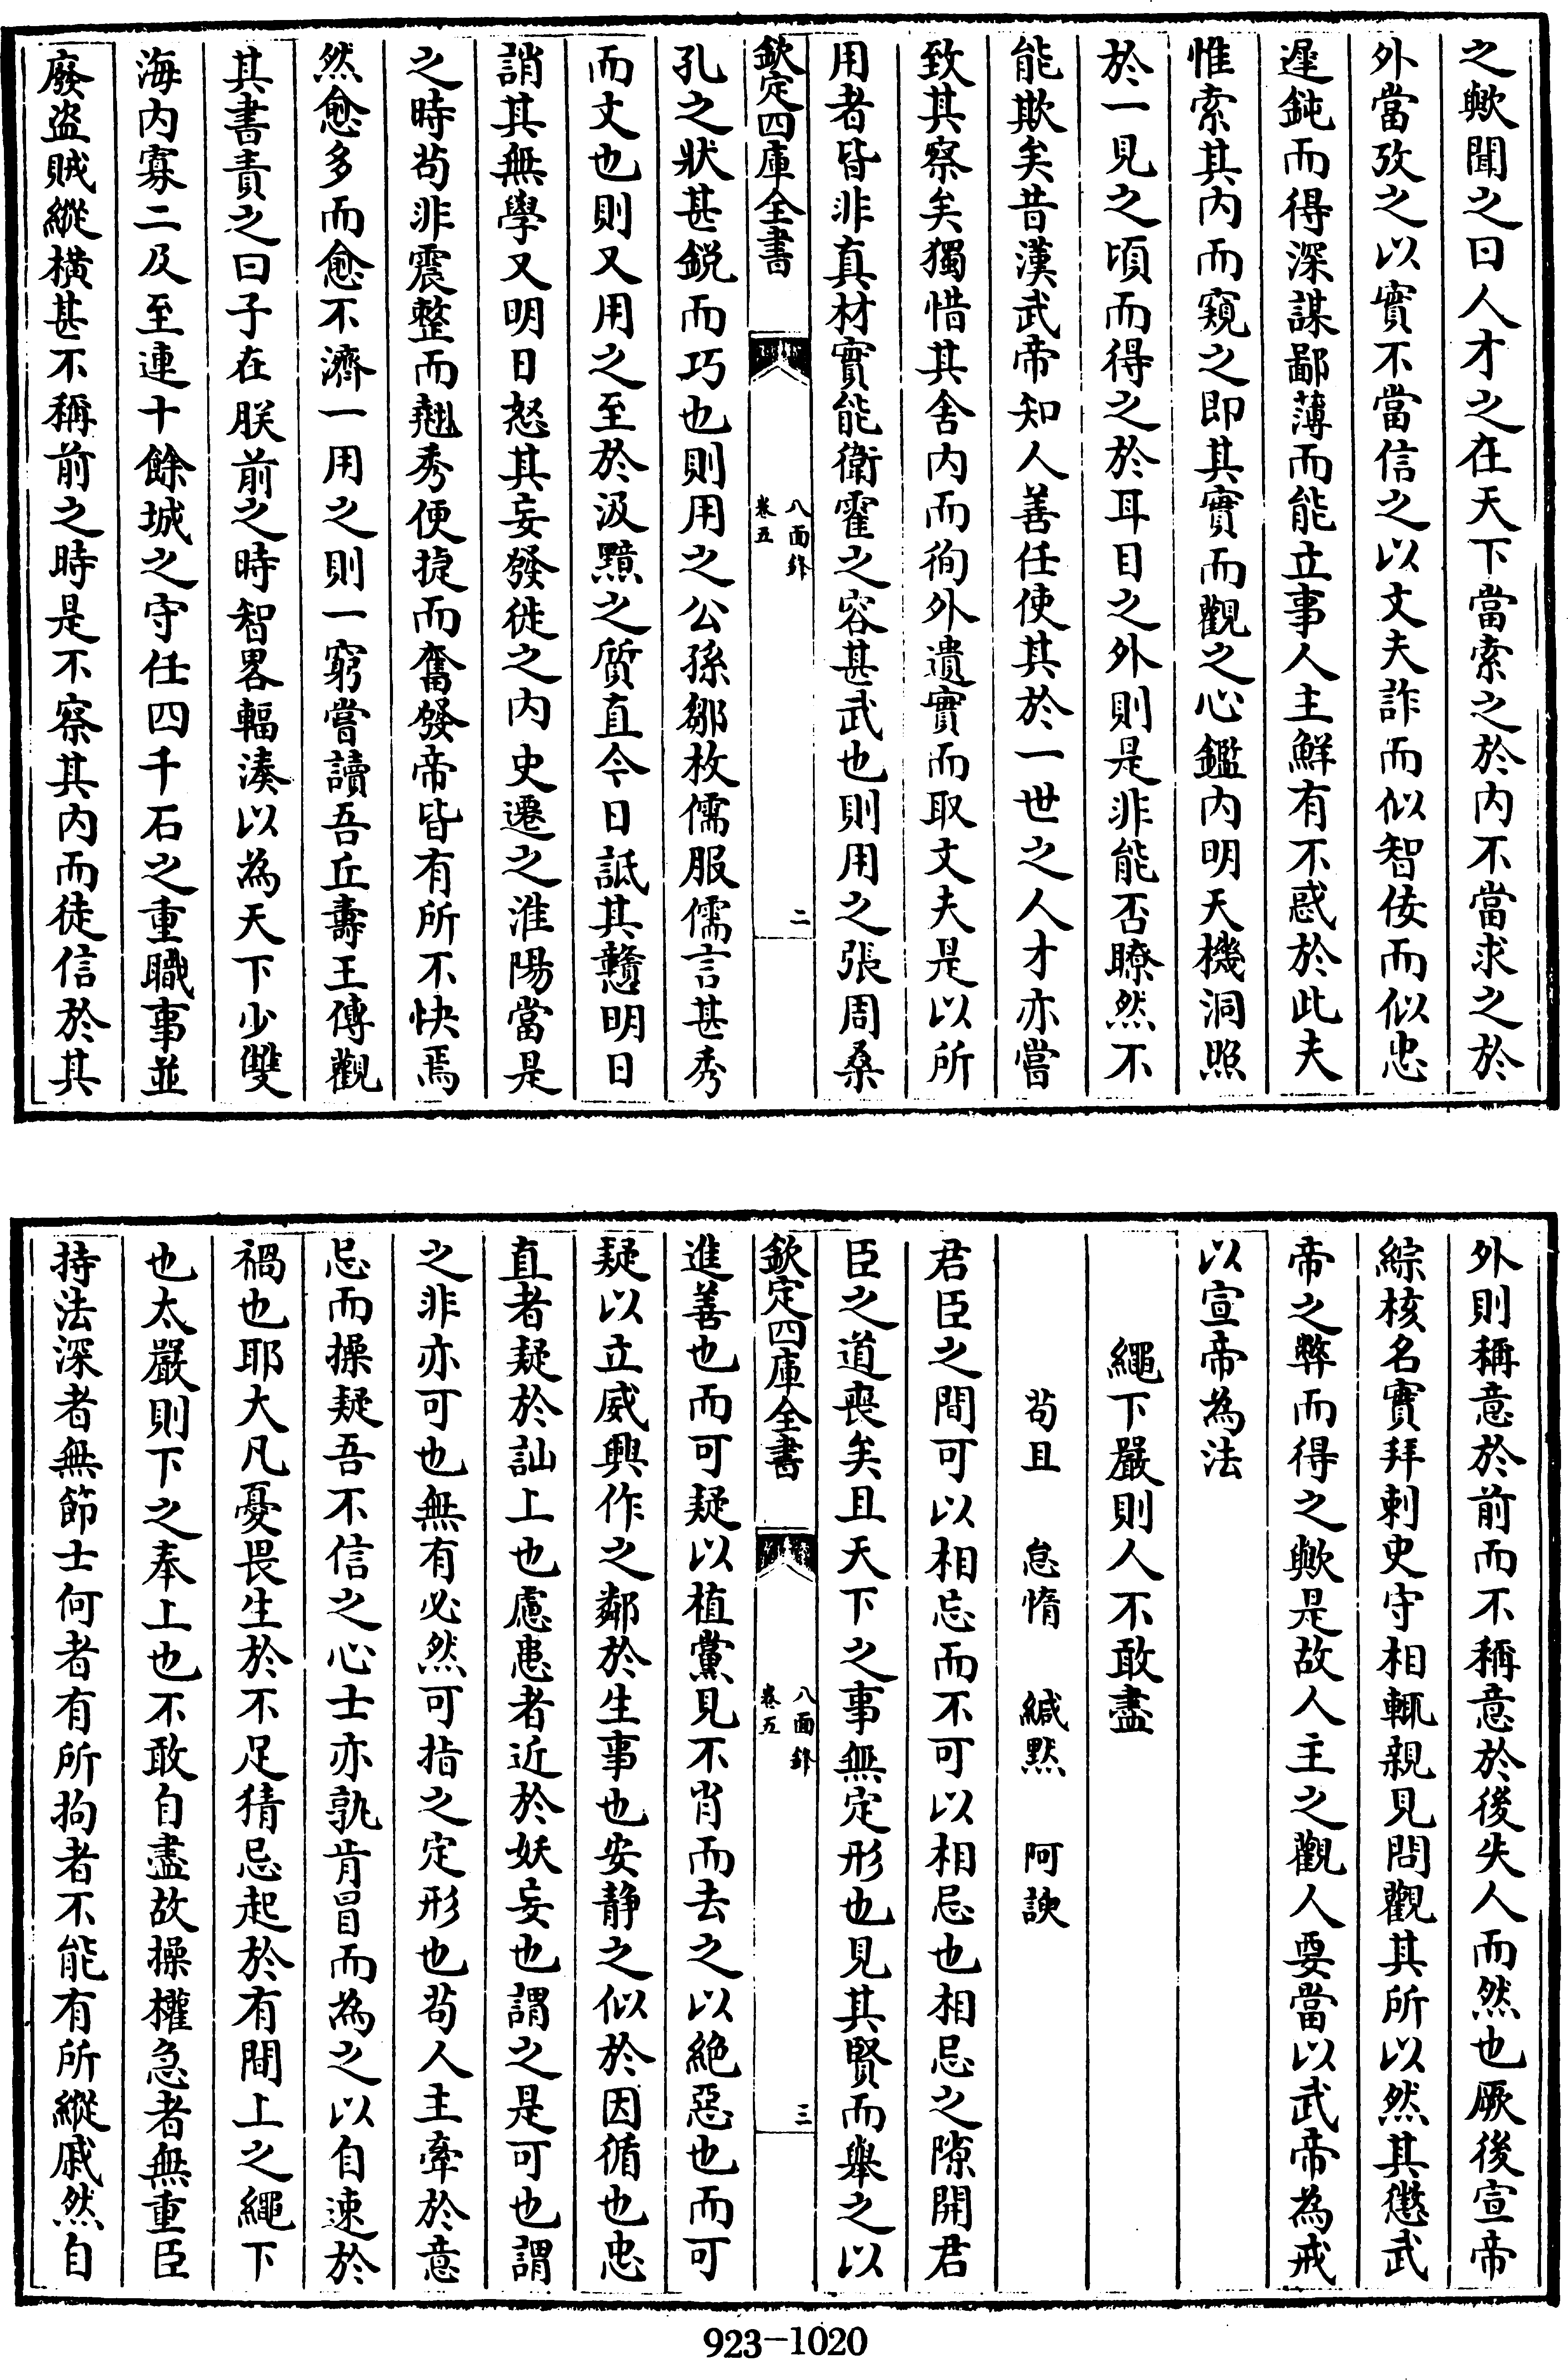 之歟聞之曰人才之在天下當索之於内不當求之於
外當攷之以實不當信之以文夫詐而似智佞而似忠
遲鈍而得深謀鄙薄而能立事人主鮮有不惑於此夫
惟索其内而窺之即其實而觀之心鑑内明天機洞照
於一見之頃而得之於耳目之外則是非能否瞭然不
能欺矣昔漢武帝知人善任使其於一世之人才亦嘗
致其察矣獨惜其舍内而徇外遺實而取文夫是以所
用者皆非真材實能衛霍之容甚武也則用之張周桑
欽定四庫全書
八面鋒
卷五
二
孔之狀甚鋭而巧也則用之公孫鄒枚儒服儒言甚秀
而文也則又用之至於汲黯之質直今日詆其戇明日
誚其無學又明日怒其妄發徙之内史遷之淮陽當是
之時茍非震整而翹秀便捷而奮發帝皆有所不快焉
然愈多而愈不濟一用之則一窮嘗讀吾丘壽王傳觀
其書責之曰子在朕前之時智畧輻湊以為天下少雙
海内寡二及至連十餘城之守任四千石之重職事並
廢盜賊縱横甚不稱前之時是不察其内而徒信於其
外則稱意於前而不稱意於後失人而然也厥後宣帝
綜核名實拜刺史守相輒親見問觀其所以然其懲武
帝之弊而得之歟是故人主之觀人要當以武帝為戒
以宣帝為法
繩下嚴則人不敢盡
茍且 怠惰 緘默 阿諛
君臣之間可以相忘而不可以相忌也相忌之隙開君
臣之道喪矣且天下之事無定形也見其賢而舉之以
欽定四庫全書
八面鋒
卷五
三
進善也而可疑以植黨見不肖而去之以絶惡也而可
疑以立威興作之鄰於生事也安静之似於因循也忠
直者疑於訕上也慮患者近於妖妄也謂之是可也謂
之非亦可也無有必然可指之定形也茍人主牽於意
忌而操疑吾不信之心士亦孰肯冒而為之以自速於
禍也耶大凡憂畏生於不足猜忌起於有間上之繩下
也太嚴則下之奉上也不敢自盡故操權急者無重臣
持法深者無節士何者有所拘者不能有所縱戚然自
923-1020